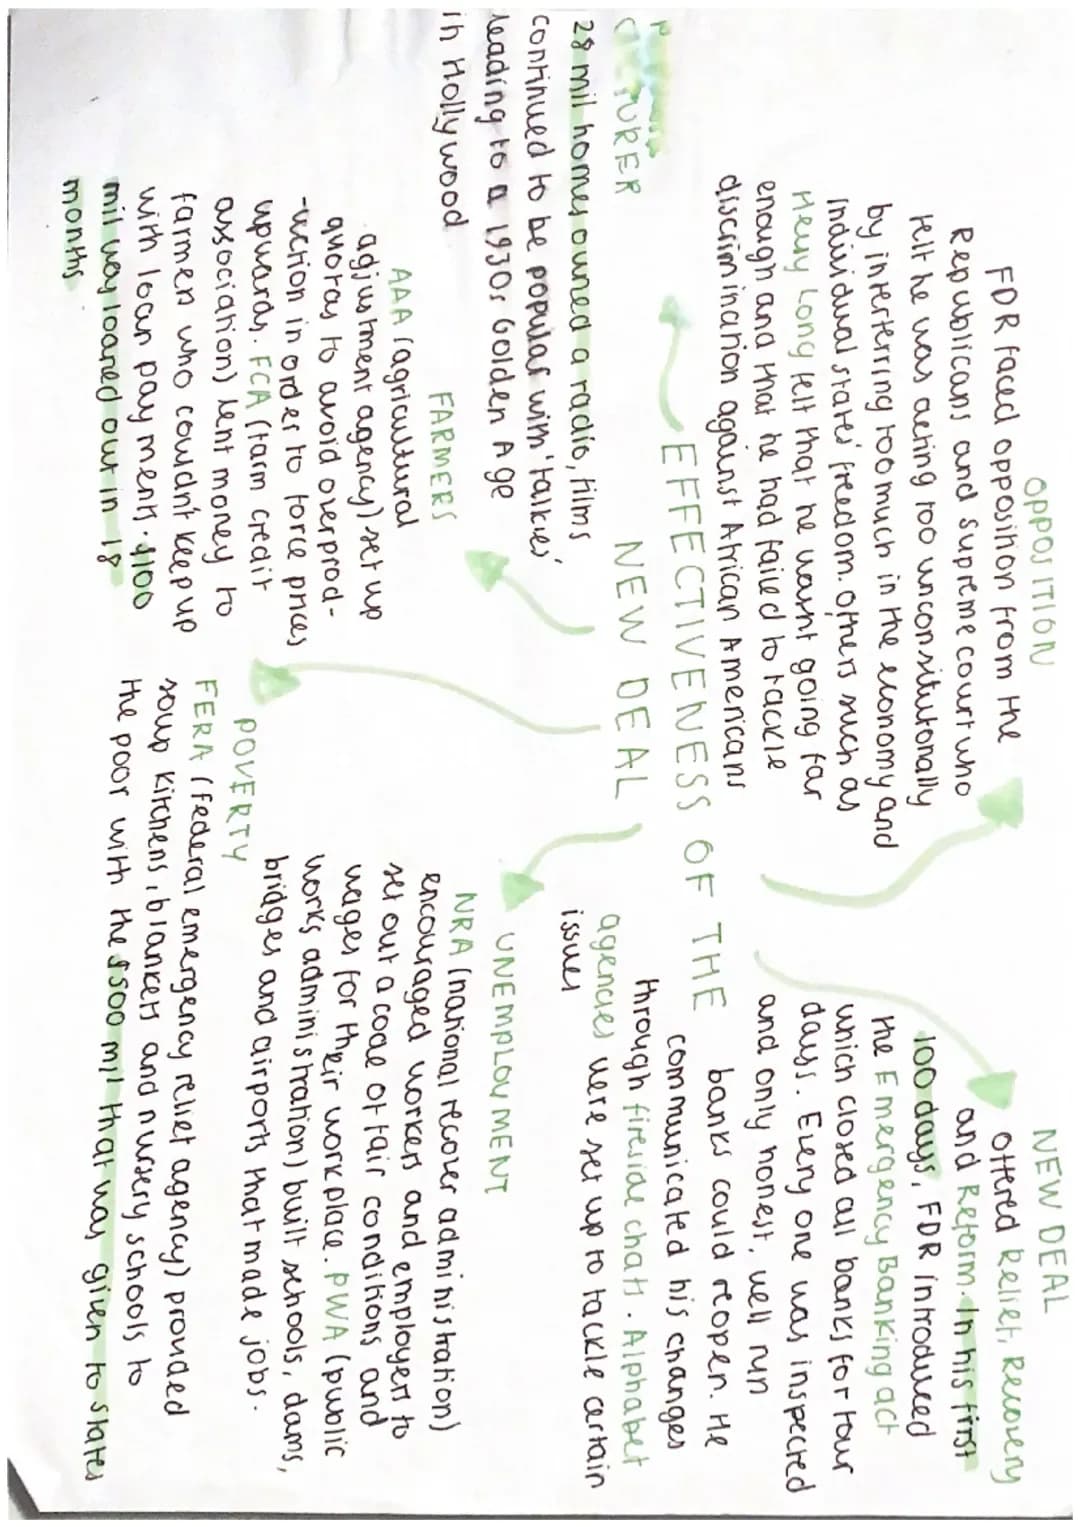 EFFECTIVENESS OF THE
NEW DEAL
OPPOSITION
FDR faced opposition from the
Republicans and supreme court who
felt he was acting too unconsitutonally
by interferring too much in the economy and
individual states' freedom. Others such as
Heuy Long felt that he wasnt going far
enough and that he had failed to tackle
discrimination against African Americans
NEW DEAL
Offered Relief, Recovery
and Reform. In his first
100 days, FDR introduced
the Emergency Banking act
which closed all banks for four
days. Every one was inspected
and only honest, well run
banks could reopen. He
communicated his changes
through fireside chats. Alphabet
agencies were set up to tackle certain
issues
28 mil homes owned a radio, films
continued to be popular with 'talkies'
leading to a 1930s Golden Age
in Hollywood
FARMERS
AAA (agricultural
adjustment agency) set up
quotas to avoid overprod-
-uction in order to force prices
upwards. FCA (farm credit
association) lent money to
farmers who couldn't keep up
with loan payments. $100
mil was loaned out in 18
months
UNEMPLOYMENT
NRA (national recover administration)
encouraged workers and employers to
set out a code of fair conditions and
wages for their workplace. PWA (public
works administration) built schools, dams,
bridges and airports that made jobs.
POVERTY
FERA (Federal emergency relief agency) provided
soup kitchens, blankets and nursery schools to
the poor with the $500 mil that was given to states